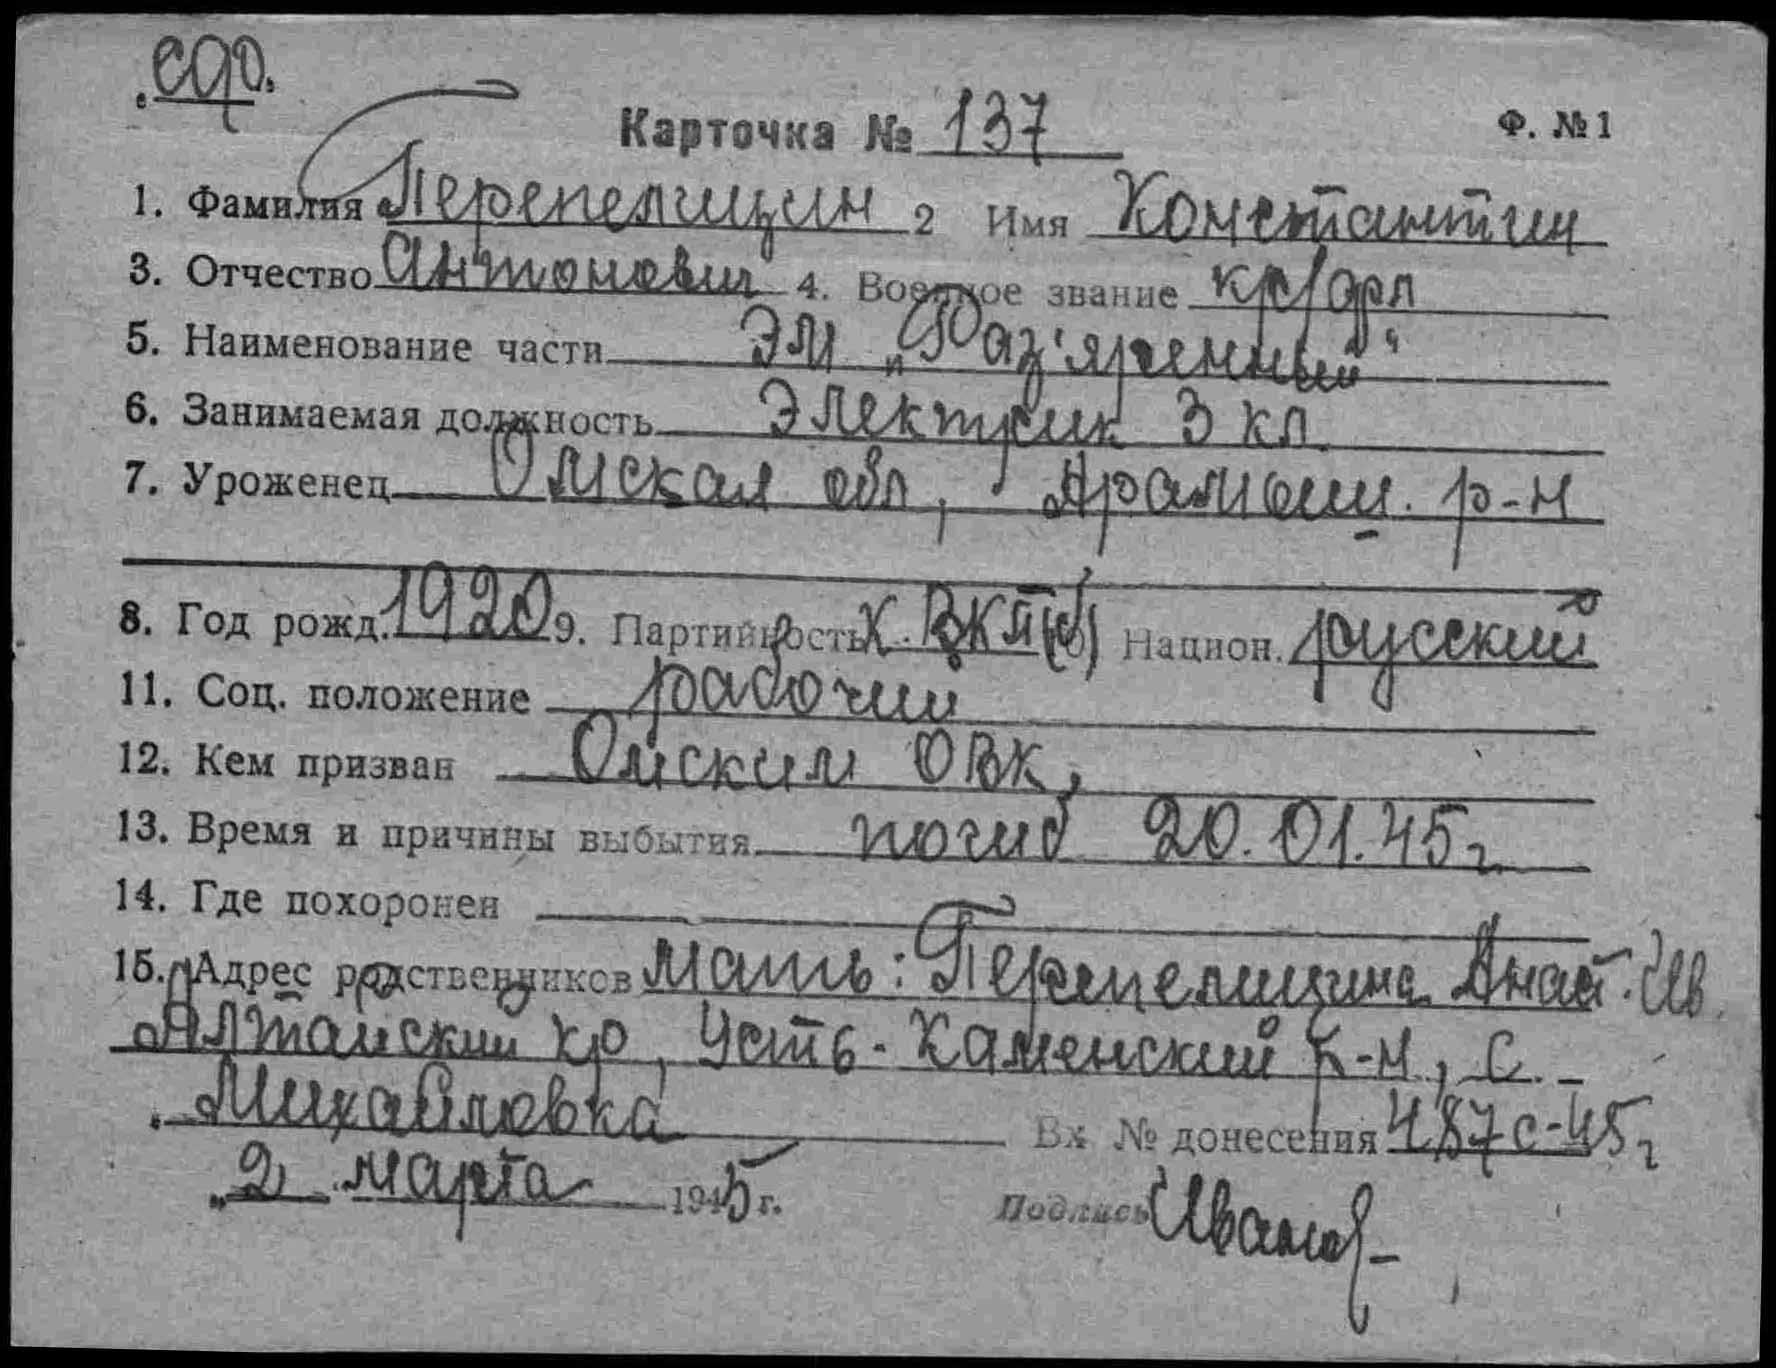 сдр.
Карточка № 137 Ф. № 1
1. Фамилия Перепелицин 2 Имя Константин
3. Отчество Антонович 4. Военное звание кр/фл
5. Наименование части ЭМ „Раз'яренный“
6. Занимаемая должность Электрик 3 кл.
7. Уроженец Омская обл, Арамаш. р-н
8. Год рожд. 1920 9. Партийность К. ВКП(б) Национ. русский
11. Соц. положение рабочий
12. Кем призван Омским ОВК,
13. Время и причины выбытия погиб 20.01.45 г
14. Где похоронен
15. Адрес родственников мать: Перепелицина Анаст. Ив.
Алтайский кр, Усть-Каменский р-н, с. –
Михайловка Вх № донесения 487с-45 г
„2 марта 1945 г. Подпись Иванов